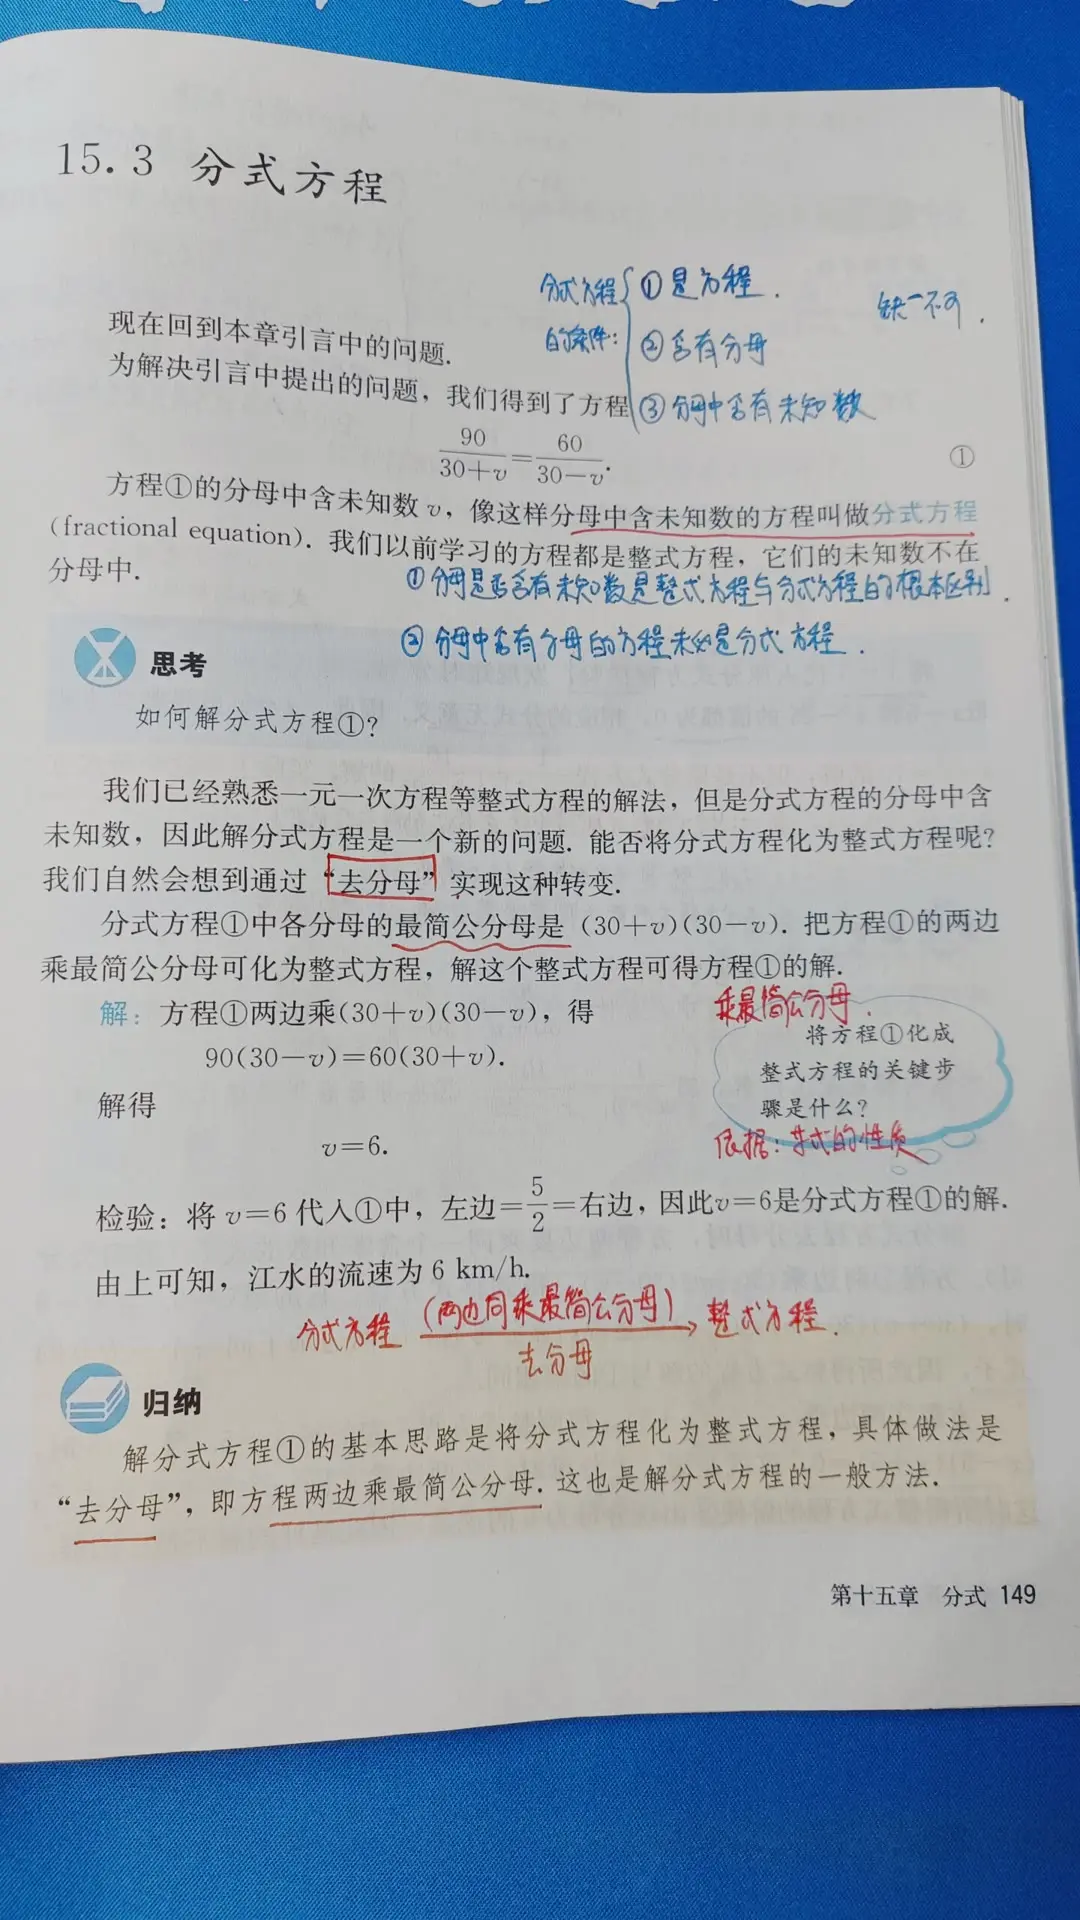 15.3 分式方程
分式方程 ①是方程.
缺一不可.
现在回到本章引言中的问题.
的条件: ②含有分母
为解决引言中提出的问题，我们得到了方程
③分母中含有未知数
90/(30+v)=60/(30−v). ①
方程①的分母中含未知数 v，像这样分母中含未知数的方程叫做分式方程
(fractional equation). 我们以前学习的方程都是整式方程，它们的未知数不在
分母中.
①分母是否含有未知数是整式方程与分式方程的根本区别.
②分母中含有分母的方程未必是分式方程.
思考
如何解分式方程①?
我们已经熟悉一元一次方程等整式方程的解法，但是分式方程的分母中含
未知数，因此解分式方程是一个新的问题. 能否将分式方程化为整式方程呢?
我们自然会想到通过“去分母”实现这种转变.
分式方程①中各分母的最简公分母是 (30+v)(30−v). 把方程①的两边
乘最简公分母可化为整式方程，解这个整式方程可得方程①的解.
解: 方程①两边乘(30+v)(30−v)，得
90(30−v)=60(30+v).
解得
v=6.
乘最简公分母.
将方程①化成
整式方程的关键步
骤是什么?
依据: 的性质
检验: 将 v=6 代入①中，左边=5/2=右边，因此v=6是分式方程①的解.
由上可知，江水的流速为 6 km/h.
分式方程 (两边同乘最简公分母) 整式方程.
去分母
归纳
解分式方程①的基本思路是将分式方程化为整式方程，具体做法是
“去分母”，即方程两边乘最简公分母. 这也是解分式方程的一般方法.
第十五章 分式 149